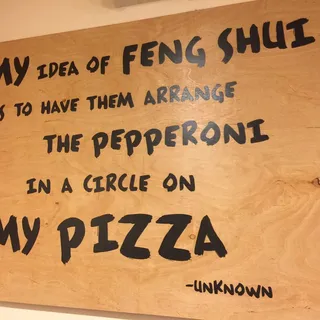 MY IDEA OF FENG SHUI
IS TO HAVE THEM ARRANGE
THE PEPPERONI
IN A CIRCLE ON
MY PIZZA
-UNKNOWN